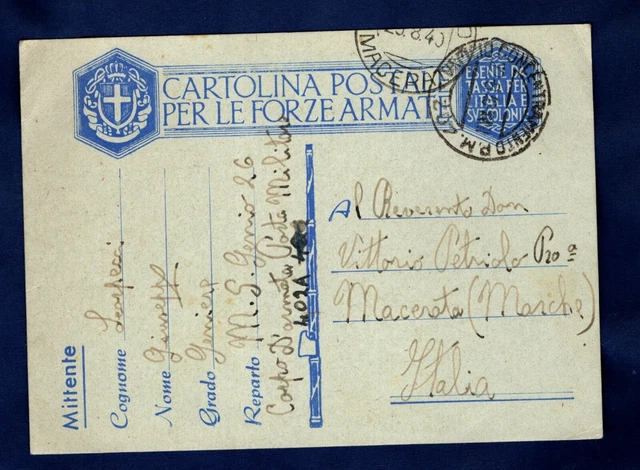 CARTOLINA POSTALE
PER LE FORZE ARMATE
ESENTE DA
TASSA PER
L'ITALIA E
SUE COLONIE
MACERATA
25.8.40
UFFICIO CONCENTRAMENTO P.M.
Al Reverendo Don
Vittorio Petriolo Pro.a
Macerata (Marche)
Italia
Mittente
Cognome
Nome Giuseppe
Grado Geniere
Reparto M. S. Genio 26
Corpo D'armata Posta Militare
402A